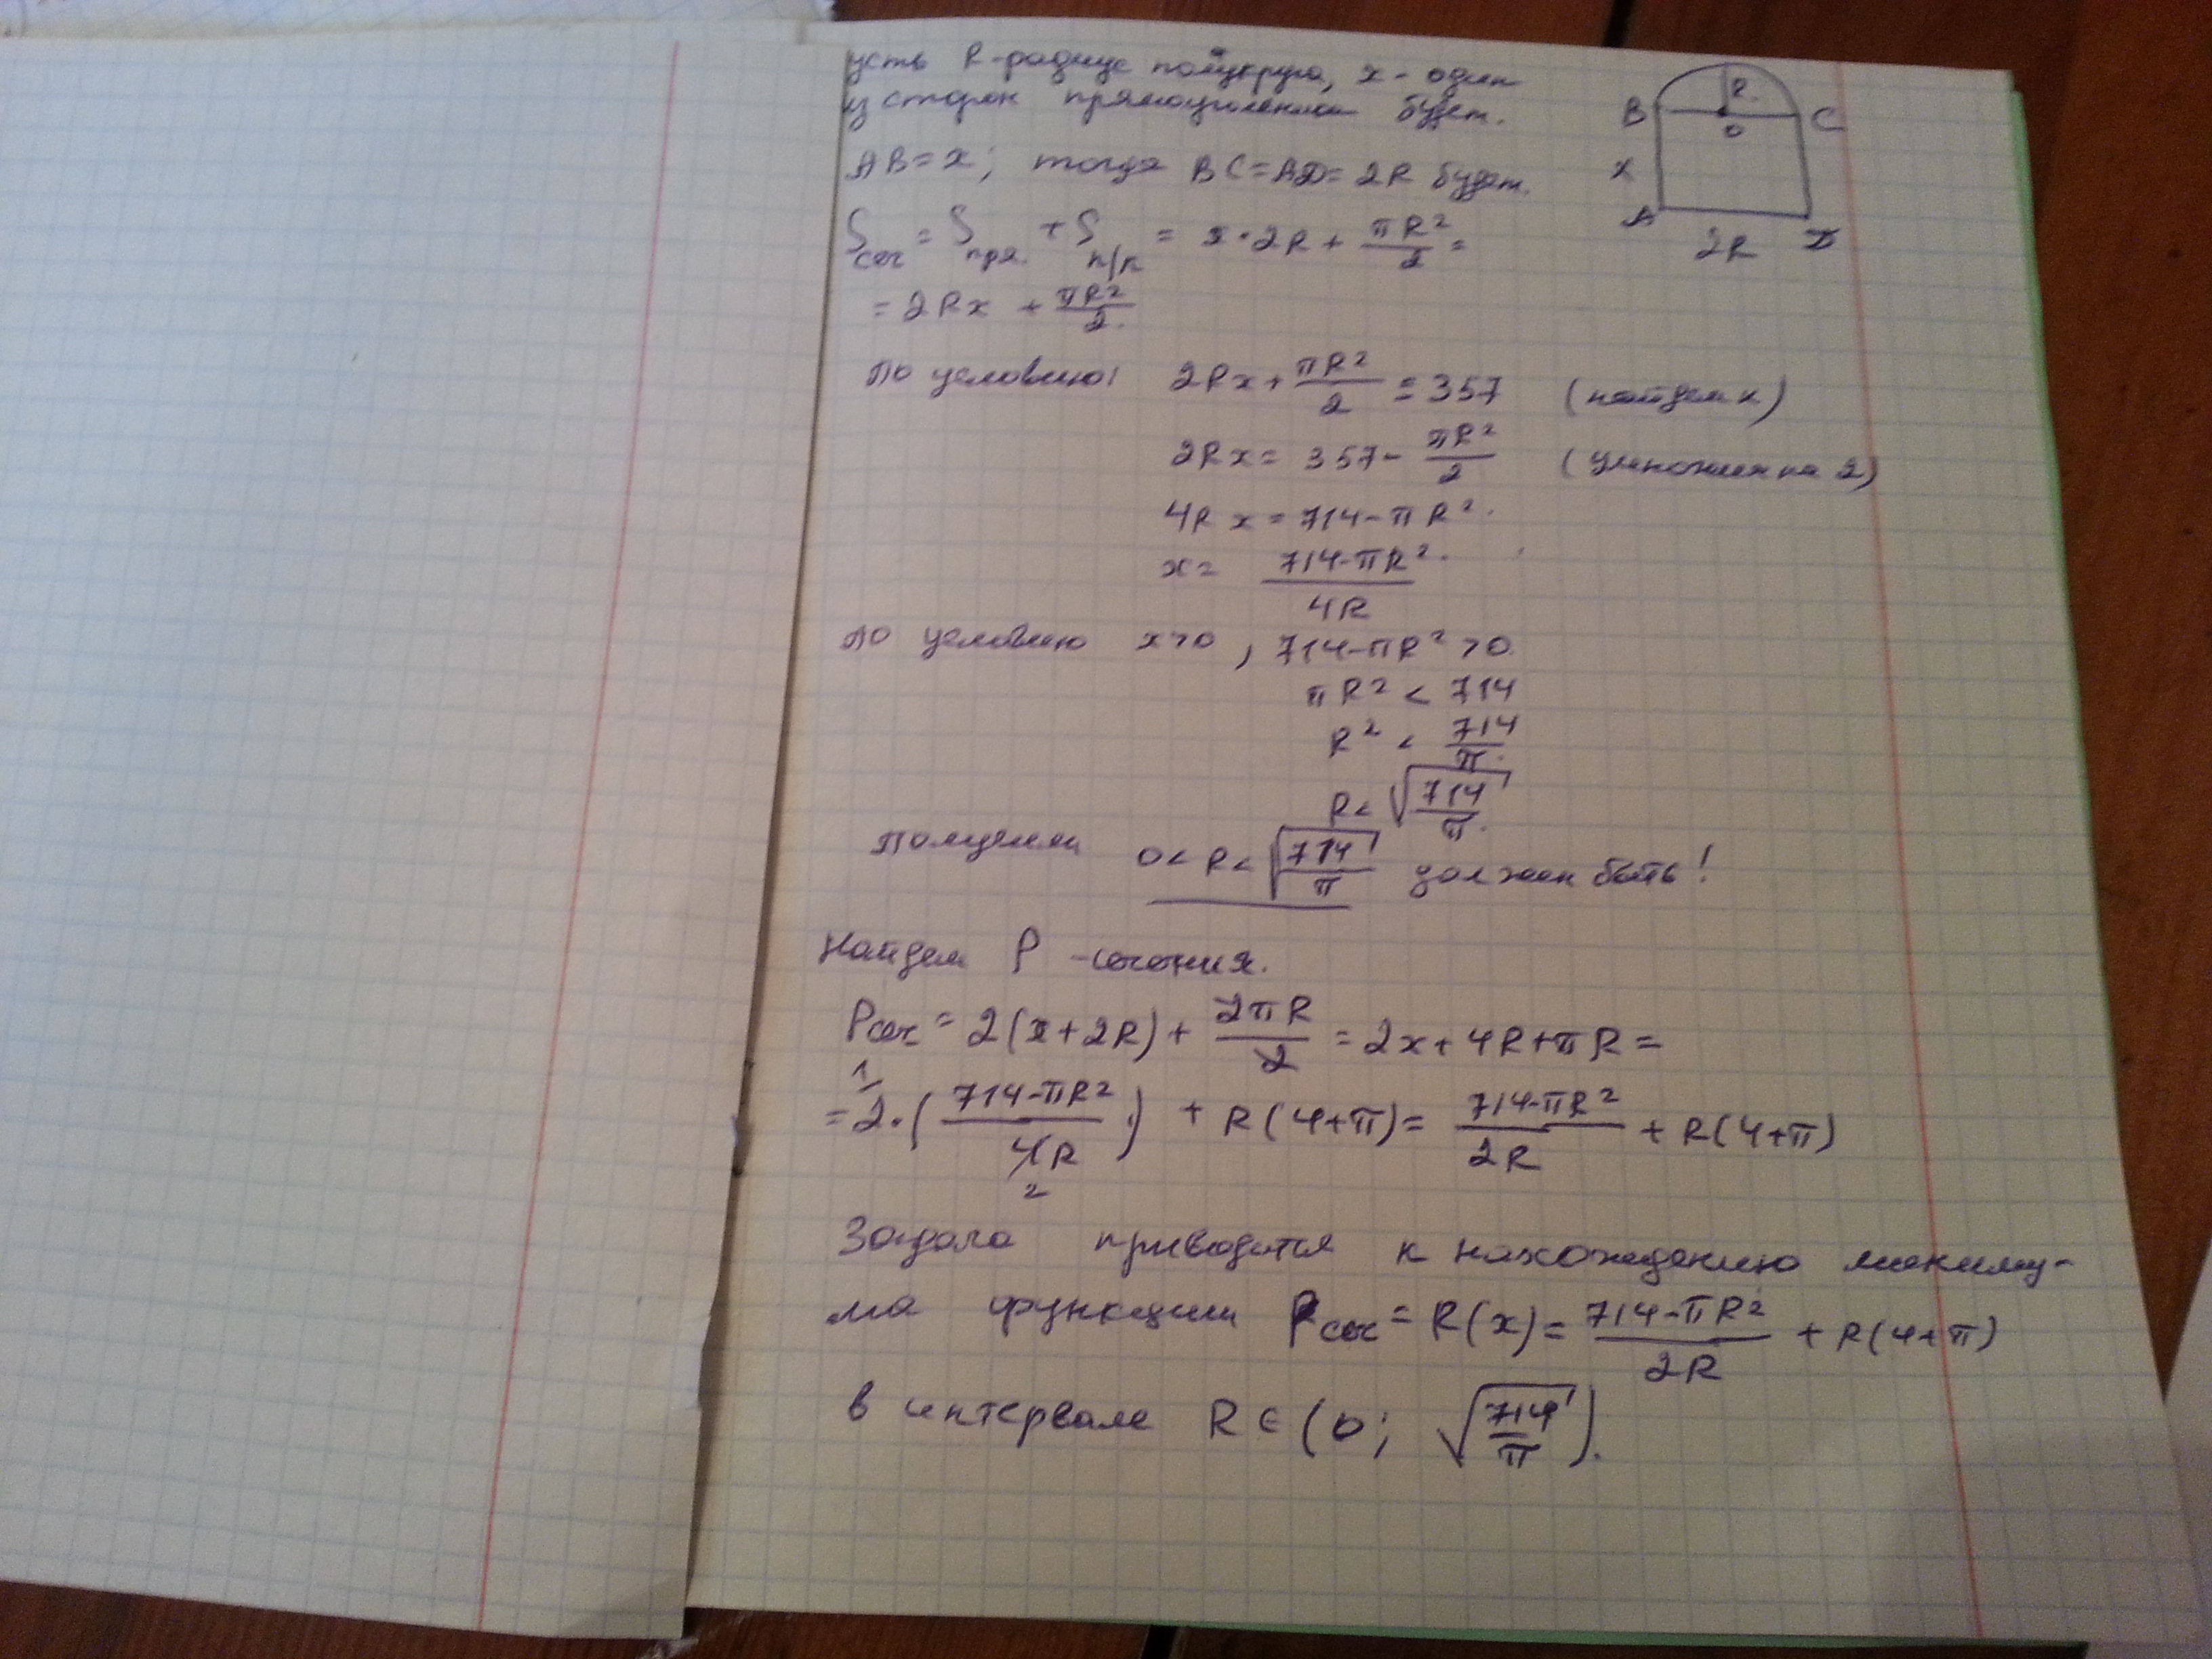 усть R-радиус полукруга, x - один
из сторон прямоугольника будет.
AB = x; тогда BC = AD = 2R будет.
S сеч = S пря. + S п/к = x · 2R + πR²/2 =
= 2Rx + πR²/2.
По условию: 2Rx + πR²/2 = 357 (найдем x)
2Rx = 357 - πR²/2 (умножим на 2)
4Rx = 714 - πR².
x = (714 - πR²)/4R
По условию x > 0, 714 - πR² > 0
πR² < 714
R² < 714/π.
R < √(714/π).
Получим 0 < R < √(714/π) должен быть!
Найдем P - сечения.
Pсеч = 2(x + 2R) + 2πR/2 = 2x + 4R + πR =
= 2 · ((714 - πR²)/4R) + R(4 + π) = (714 - πR²)/2R + R(4 + π)
1
2
Задача приводится к нахождению миниму-
ма функции Pсеч = R(x) = (714 - πR²)/2R + R(4 + π)
в интервале R ∈ (0; √(714/π)).
B
R.
O
C
x
A
2R
D